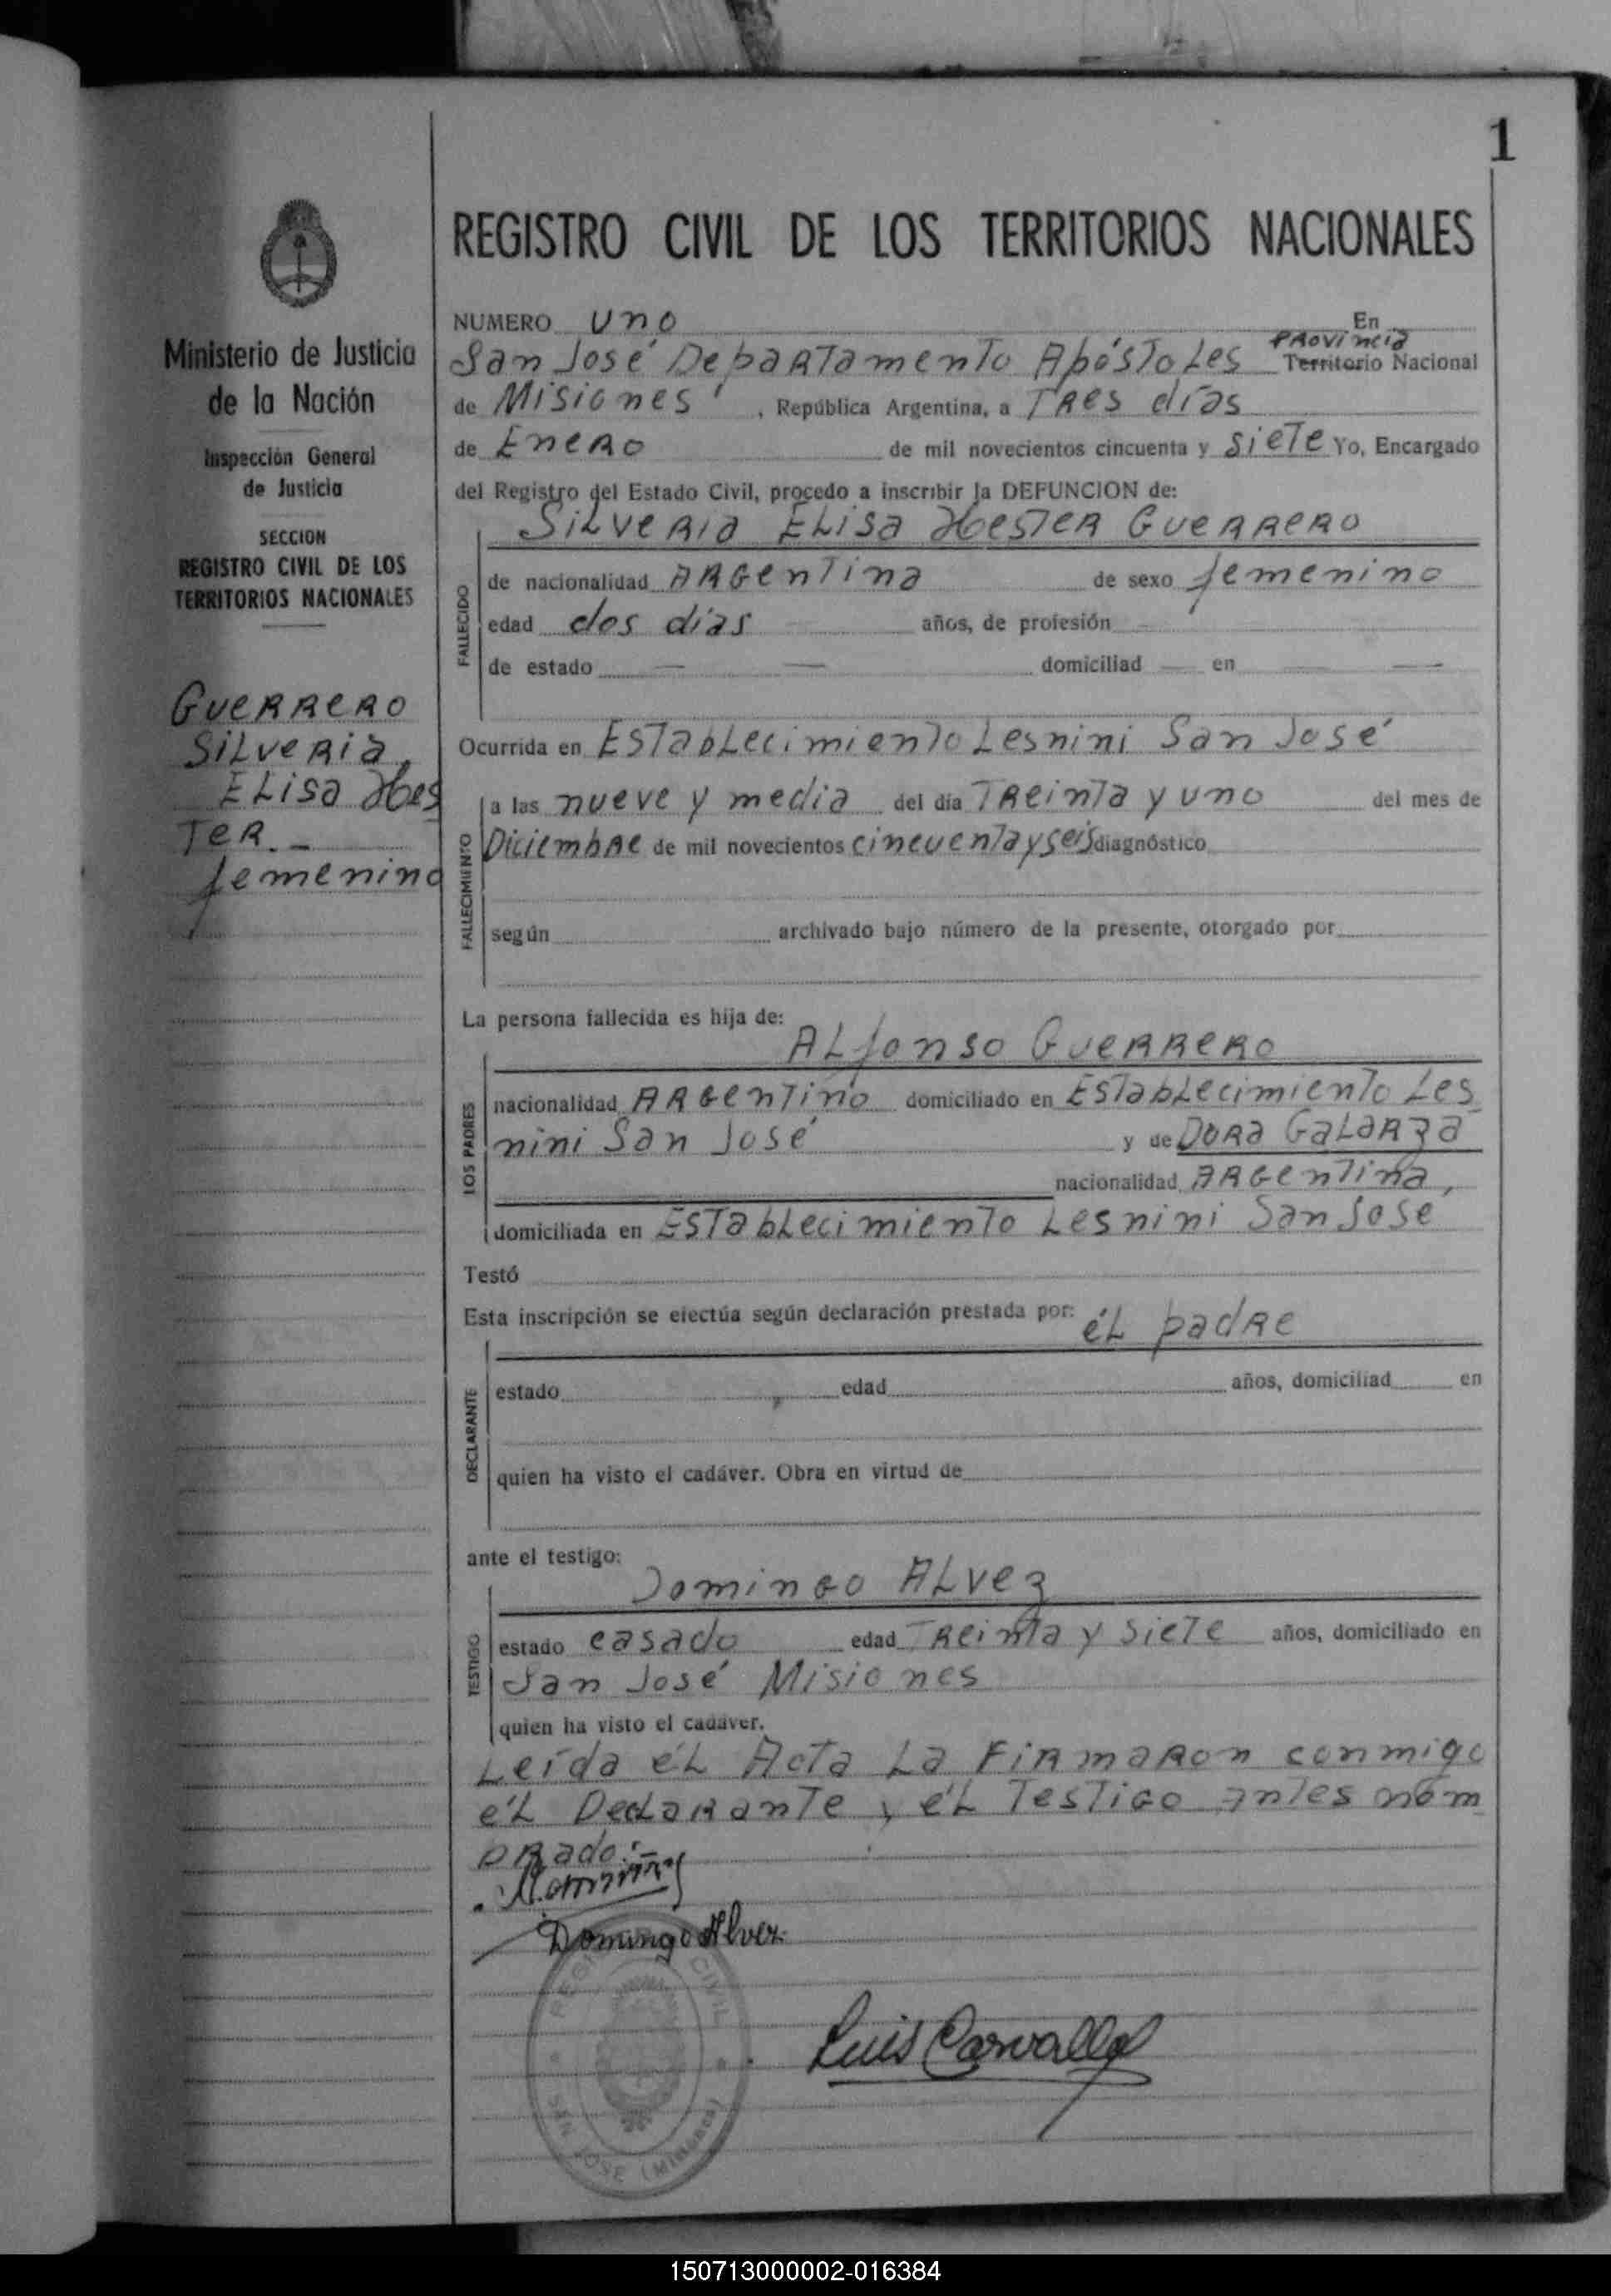 1
REGISTRO CIVIL DE LOS TERRITORIOS NACIONALES
Ministerio de Justicia
de la Nación
Inspección General
de Justicia
SECCION
REGISTRO CIVIL DE LOS
TERRITORIOS NACIONALES
GUERRERO
SILVERIA
ELISA HES
TER.-
femenino
NUMERO uno En
San José Departamento Apóstoles Provincia Territorio Nacional
de Misiones, República Argentina, a Tres días
de Enero de mil novecientos cincuenta y siete Yo, Encargado
del Registro del Estado Civil, procedo a inscribir la DEFUNCION de:
Silveria Elisa Hester Guerrero
FALLECIDO
de nacionalidad Argentina de sexo femenino
edad dos días años, de profesión —
de estado — — domiciliad — en — —
Ocurrida en Establecimiento Lesnini San José
FALLECIMIENTO
a las nueve y media del día Treinta y uno del mes de
Diciembre de mil novecientos cincuenta y seis diagnóstico
según archivado bajo número de la presente, otorgado por
La persona fallecida es hija de:
Alfonso Guerrero
LOS PADRES
nacionalidad Argentino domiciliado en Establecimiento Les
nini San José y de Dora Galarza
nacionalidad Argentina,
domiciliada en Establecimiento Lesnini San José
Testó
Esta inscripción se efectúa según declaración prestada por: él padre
DECLARANTE
estado edad años, domiciliad en
quien ha visto el cadáver. Obra en virtud de
ante el testigo:
Domingo Alvez
TESTIGO
estado casado edad Treinta y siete años, domiciliado en
San José Misiones
quien ha visto el cadáver.
Leída él Acta la firmaron conmigo
él Declarante y él Testigo antes nom
brado:-
Domingo Alvez
REGISTRO CIVIL
SAN JOSE (Misiones)
Luis Carvallo
150713000002-016384